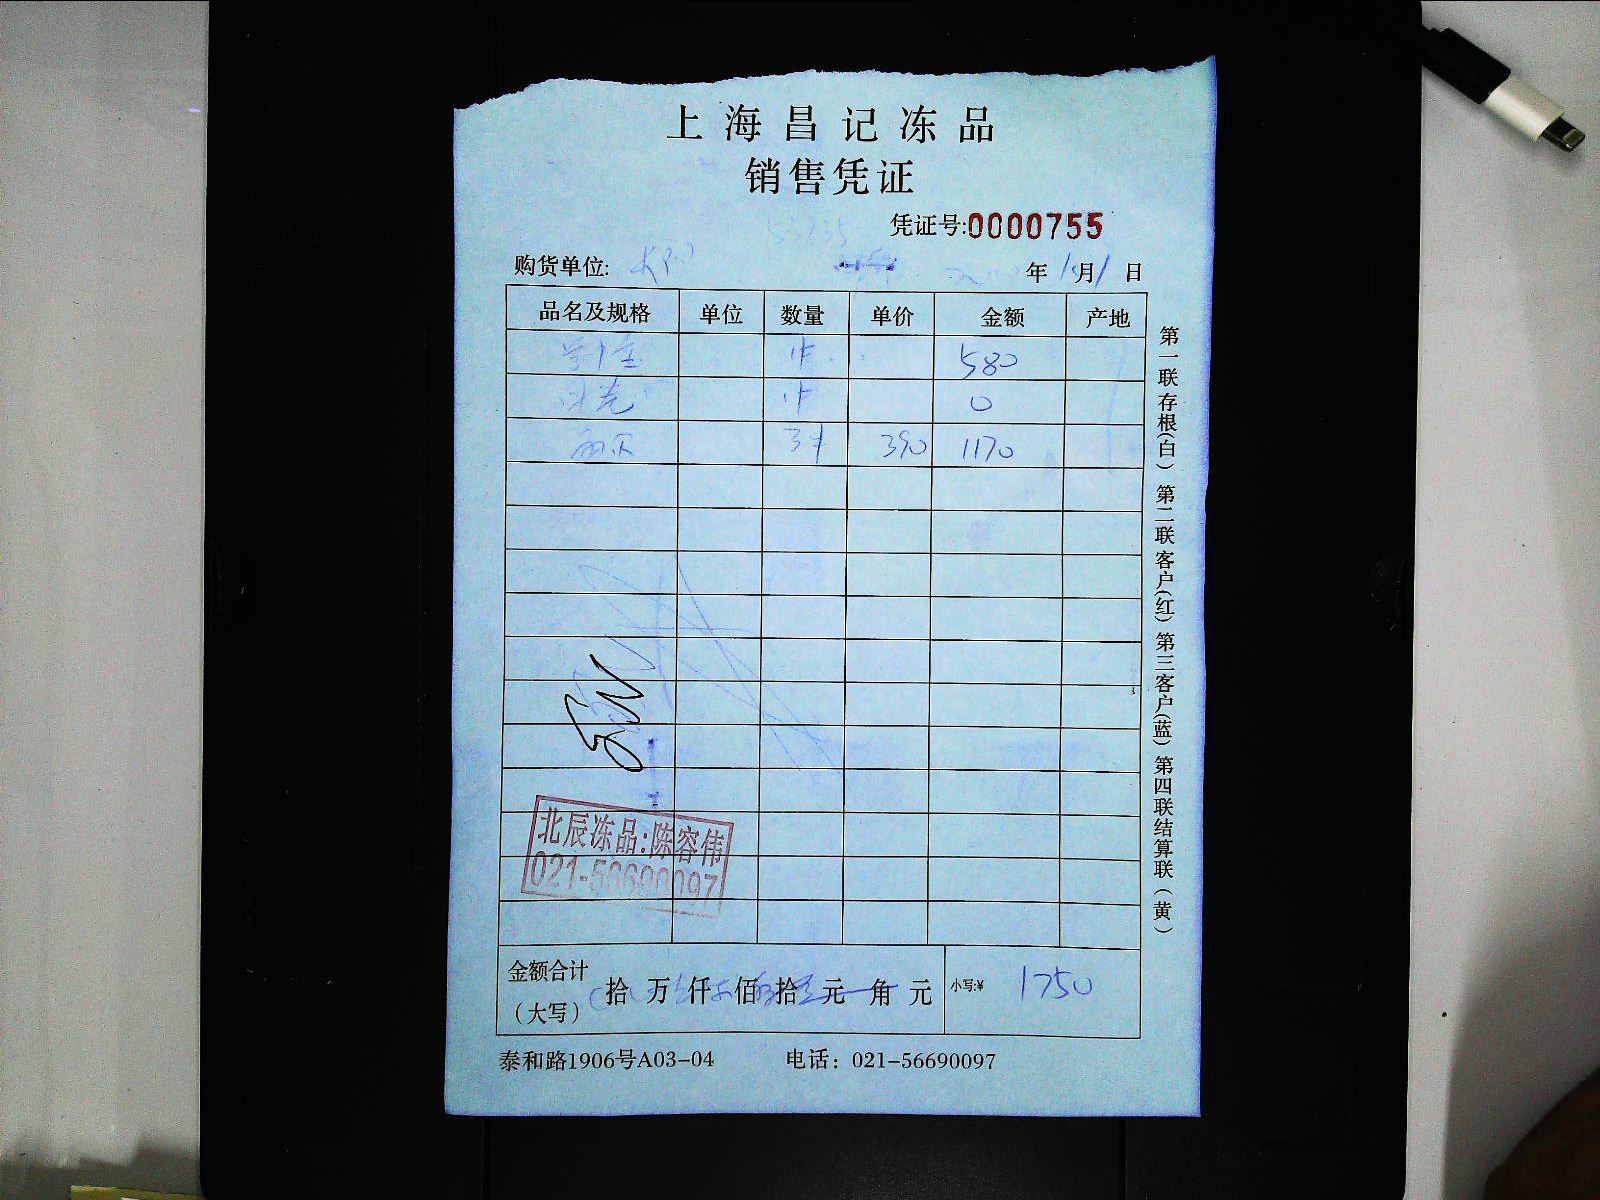 上海昌记冻品
销售凭证
凭证号:0000755
购货单位: 年 月 日
品名及规格 单位 数量 单价 金额 产地
580
0
390 1170
北辰冻品:陈容伟
021-56690097
金额合计(大写) 拾 万 仟 佰 拾 元 角 元 小写:¥ 1750
泰和路1906号A03-04 电话：021-56690097
第一联存根(白) 第二联客户(红) 第三客户(蓝) 第四联结算联(黄)